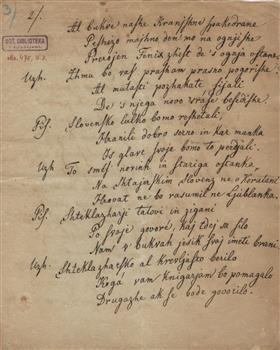 3)
2/.
DRŽ. BIBLIOTEKA
v Ljubljani
Al bukve nashe Kranjshne spakedrane
Pesnizo mojhno den mo na ognjishe
Prerojen Fenik shift de s' ogaja ostane
Uzh. Zhmu bo ras prasham prasno pogorishe
Al mutasti pozhakate fijali
De s njega novo srase besedishe
Pis. Slovensko lahko bomo reshetali,
Hranili dobro serno in kar manka
Is glave svoje bomo to perdjali.
Uzh To smes novish in stariga ostanka
Na Shtajerskim Slovenz ne, ne Korotani
Hrovat ne bo rasumil ne Ljublanka.
Pis. Shteklazharji tatovi in zigani
Po svoje govore, kaj tdej sa filo
Nam v bukvah jesik svoj imeti brani
Uzh. Shteklazharsko al krevljasto berilo
Koga vam knigarjam bo pomagalo
Drugazhe ak se bode govorilo.